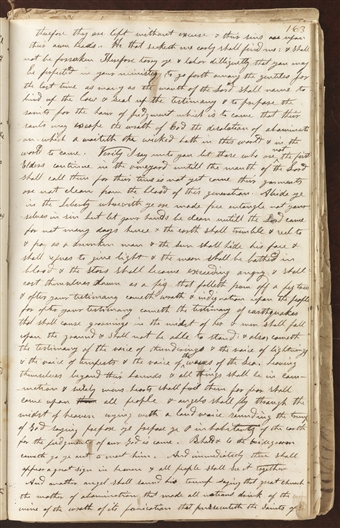 163
therefore they are left without excuse & their sins are upon
their own heads. He that seeketh me early shall find me & shall
not be forsaken Therefore tarry ye & labor dilligently that you may
be perfected in your ministry to go forth among the gentiles for
the last time as many as the mouth of the Lord shall name to
bind up the law & seal up the testimony & to prepare the
saints for the hour of judgment which is to come that their
souls may escape the wrath of God the desolation of abomination
which awaiteth the wicked both in this world & in the
world to come. Verily I say unto you let those who are not the first
Elders continue in the vineyard untill the mouth of the Lord
shall call them for their time is not yet come their garments
are not clean from the blood of this generation Abide ye
in the liberty wherewith ye are made free entangle not your
selves in sin but let your hands be clean untill the Lord come
for not many days hence & the earth shall tremble & reel to
& fro as a drunken man & the sun shall hide his face &
shall refuse to give light & the moon shall be bathed in
blood & the stars shall become exceeding angry & shall
cast themselves down as a fig that falleth from off a fig tree
& after your testimony cometh wrath & indignation upon the people
for after your testimony cometh the testimony of earthquakes
that shall cause groanings in the midst of her & men shall fall
upon the ground & shall not be able to stand & also cometh
the testimony of the voice of thunderings & the voice of lightnings
& the voice of tempests & the voice of the waves of the sea heaving
themselves beyond their bounds & all things shall be in com
motion & surely mens hearts shall fail them for fear shall
come upon all people & angels shall fly through the
midst of heaven crying with a loud voice sounding the trump
of God saying prepare ye prepare ye O inhabitants of the earth
for the judgment of our God is come. Behold & lo the bridegroom
cometh go ye out to meet him. And immediately there shall
appear a great sign in heaven & all people shall see it together
And another angel shall sound his trump saying that great church
the mother of abominations that made all nations drink of the
wine of the wrath of its fornication that persecuteth the saints of